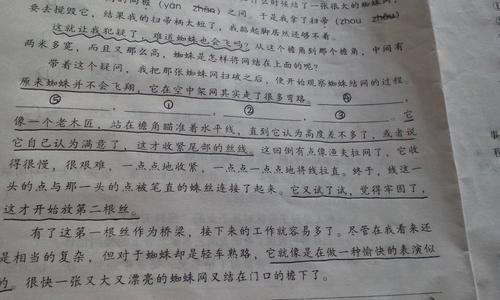 (yán zhān)之间。于是我拿了扫帚(zhou zhǒu)
要去搅毁它,结果我的扫帚柄太短了,我踮起脚居然还够不着。
这就让我犯疑了,难道蜘蛛也会飞吗?从这个檐角到那个檐角,中间有
两米多宽,而且又那么高,蜘蛛是怎样将网结在上面的呢?
带着这个疑问,我把那张蜘蛛网扫破之后,便开始观察蜘蛛结网的过程。
原来蜘蛛并不会飞翔,它在空中架网其实走了很多弯路。④
⑤ ① ② ③ 。它
像一个老木匠,站在檐角瞄准着水平线,直到它认为高度差不多了,或者说
它自己认为满意了,这才收紧尾部的丝线。这回倒有点像渔夫拉网了,它收
得很慢,很艰难,一点点地收紧,一点点一点点地将线拉直。终于,线这一
头的点与那一头的点被笔直的蛛丝连接了起来。它又试了试,觉得牢固了,
这才开始放第二根丝。
有了这第一根丝作为桥梁,接下来的工作就容易多了。尽管在我看来还
是相当的复杂,但对于蜘蛛却是轻车熟路,它就像是在做一种愉快的表演似
的。很快一张又大又漂亮的蜘蛛网又结在门口的檐下了。
事